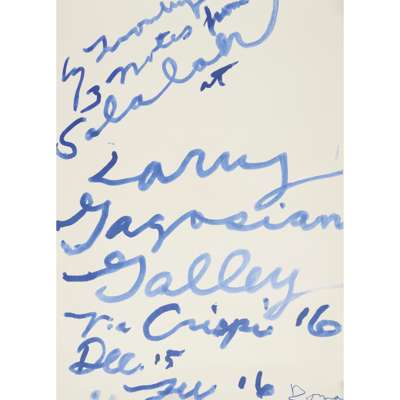 Cy Twombly
3 Notes from
Salalah at
Larry
Gagosian
Galley
Via Crispi '16
Dec. '15
'16 Roma